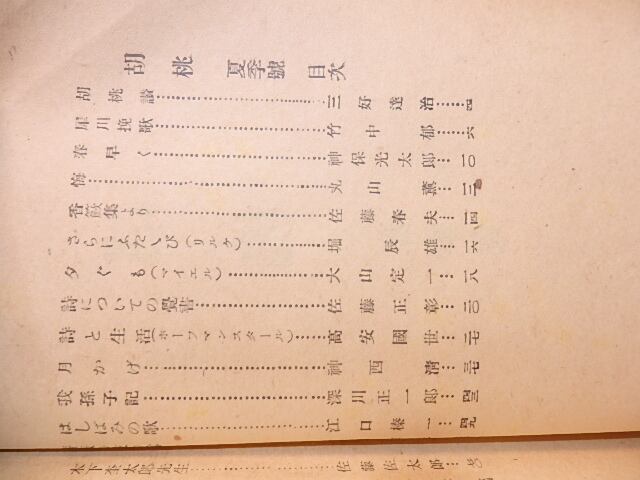 胡桃 夏季號 目次
胡桃讃 三好達治 四
犀川挽歌 竹中郁 六
春早く 神保光太郎 一〇
悔 丸山薰 一二
香奩集より 佐藤春夫 一四
さらにふたゝび(リルケ) 堀辰雄 一六
夕ぐも(マイエル) 大山定一 一八
詩についての覺書 佐藤正彰 二〇
詩と生活(ホーフマンスタール) 高安國世 二七
月かげ 神西清 三七
我孫子記 深川正一郎 四三
はしばみの歌 江口榛一 四九
木下杢太郎先生 佐藤佐太郎